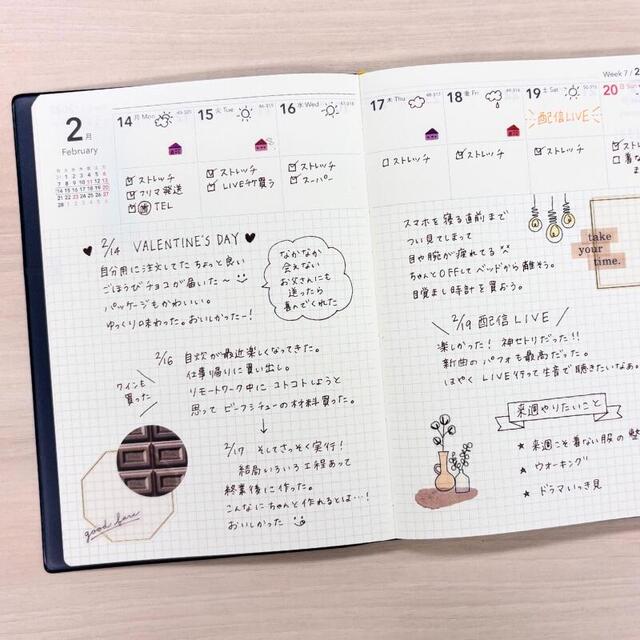 2月
February
14 月 Mon
15 火 Tue
16 水 Wed
ストレッチ
フリマ発送
TEL
ストレッチ
LIVEチケ買う
ストレッチ
スーパー
2/14 VALENTINE'S DAY
自分用に注文してた ちょっと良い
ごほうびチョコが届いた〜
パッケージもかわいい。
ゆっくり味わった。おいしかったー!
なかなか
会えない
お父さんにも
送ったら
喜んでくれた
2/16 自炊が最近楽しくなってきた。
仕事帰りに買い出し。
リモートワーク中に コトコトしようと
思って ビーフシチューの材料買った。
ワインも
買った
2/17 そしてさっそく実行!
結局いろいろ工程あって
終業後に作った。
こんなにちゃんと作れるとは…!
おいしかった
Week 7
17 木 Thu
18 金 Fri
19 土 Sat
20 日 Sun
配信LIVE
ストレッチ
ストレッチ
ストレッチ
スマホを寝る直前まで
つい見てしまって
目や腕が疲れてる
ちゃんとOFFしてベッドから離そう。
目覚まし時計を買おう。
take
your
time.
2/19 配信 LIVE
楽しかった! 神セトリだった!!
新曲の パフォも最高だった。
はやく LIVE行って生音で聴きたいなぁ。
来週やりたいこと
★ 来週こそ着ない服の整
★ ウオーキング
★ ドラマいっき見